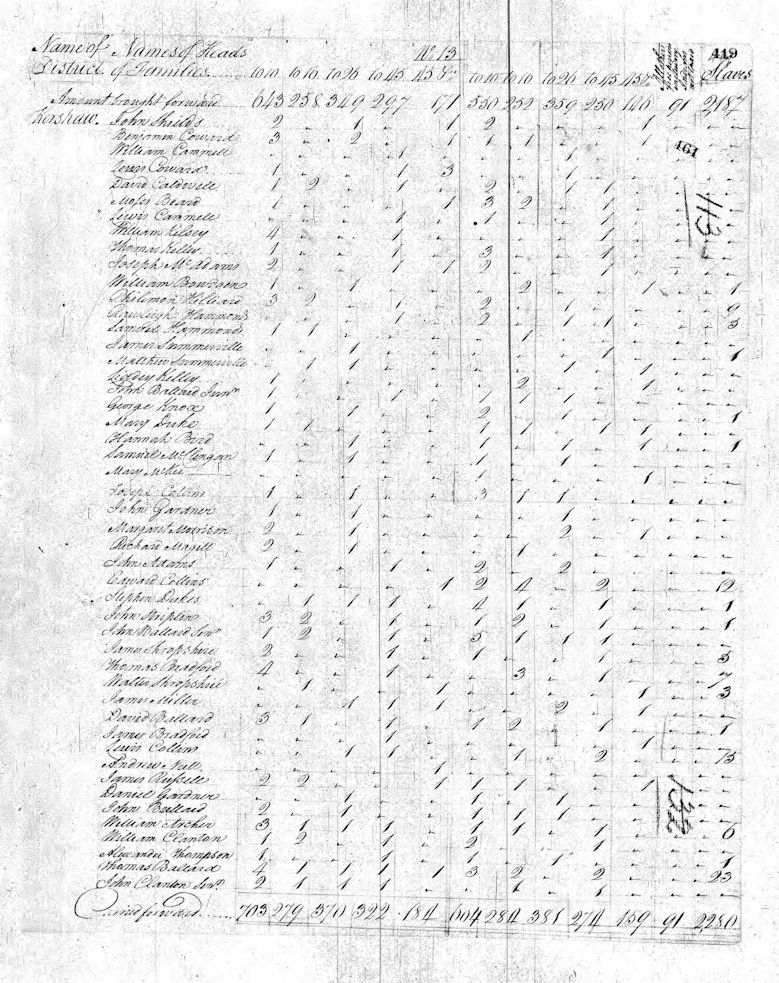 Name of Names of Heads No 13 419
District of Families to 10 to 16 to 26 to 45 45 to 10 to 16 to 26 to 45 45 Slaves
Amount brought forward 643 258 349 297 171 550 252 359 250 146 91 2187
Kershaw. John Shields 2 1 1 2 1
Benjamin Coward 3 2 1 1 1 1
William Cammell 1 1
161
Lewis Coward 1 1 3 1
David Caldwell 1 2 1 2 1 1
113
Moses Beard 1 1 3 2 1
Lewis Cammell 1 1 1
William Kelsey 4 1 1 1
Thomas Kelley 1 1 3 1
Joseph McAdams 2 1 1 2 1
William Bowdoen 1 1 2 1 1
Philimon Hilliard 3 2 1 2 1
Rawleigh Hammond 1 1 2 1 1 9
Samuel Hammond 1 1 1 3
James Summerville 1 1
Matthew Summerville 1 1 1 1 1
Kelley 1 2 1
John Ballard Junr 1 1 1 1 1
George Knox 1 1 2 1
Mary Duke 1 1 1 1 1 1 1 1
Hannah Bird 1 1 1
Samuel McClengan 1 1 1 1 1
Mary McKee 1 1
Joseph Collins 1 1 3 1 1
John Gardner 1 1 1
Margaret Morrison 2 1 1 2 1
Richard Magill 2 1 1
John Adams 1 1 2 2
Edward Collins 1 2 4 2 12
Stephen Dukes 1 1 1 4 1 1 1
John Kiplin 3 2 1 1 2 1 1
John Ballard Senr 1 2 1 5 1 1 1
James Shropshire 2 1 1 1 1 3
Thomas Bradford 4 1 3 1 7
Walter Shropshire 1 1 1 3
James Miller 1 1 1 2 1
David Ballard 3 1 1 1 2 1 1
James Bradford 1 1
Lewis Collins 1 1 1 2 15
Andrew Nutt 1 1
James Russell 2 2 1 1 1 1
Daniel Gardner 1 1 1
132
John Ballard 2 1 1 1 1
William Archer 3 1 1 1 1 1 1 6
William Clanton 1 2 1 2 1
Alexander Thompson 1 1 1 1 1
Thomas Ballard 4 1 1 1 1 3 2 2 23
John Clanton Senr 2 1 1 1 1 1
Carried forward 703 279 370 322 184 604 284 381 274 159 91 2280